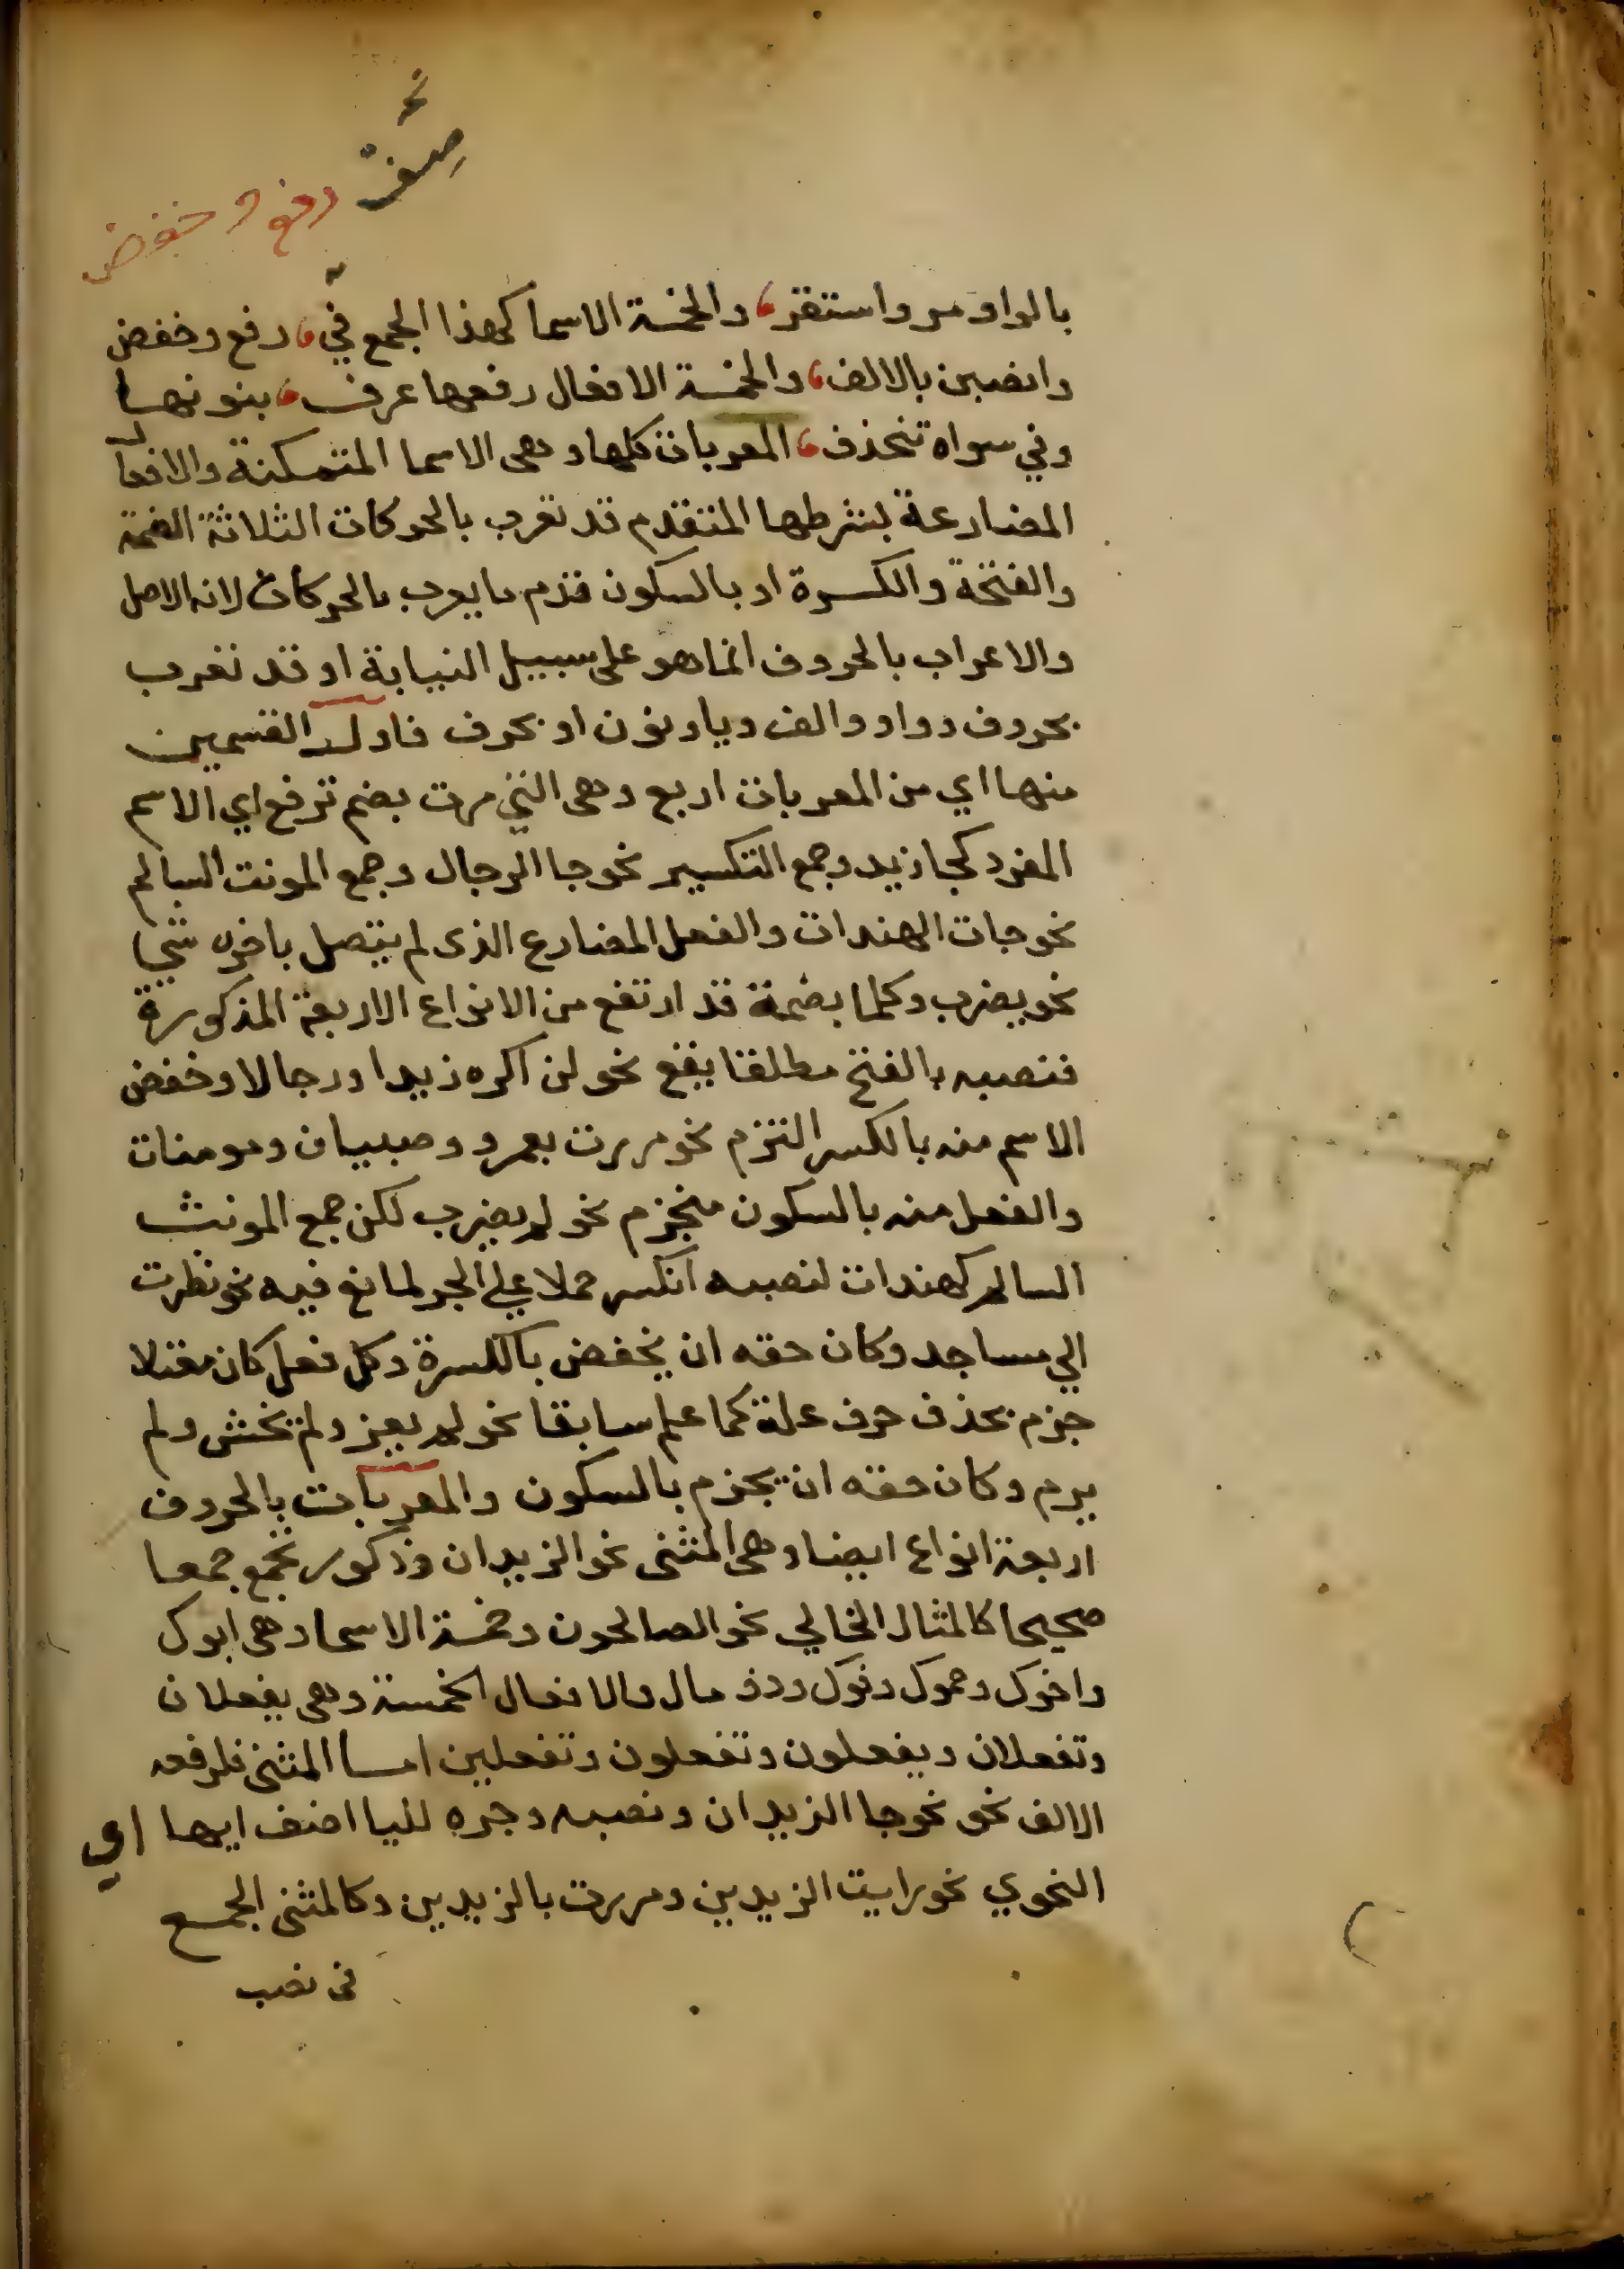 رفع وخفض
بالواو مر واستقر، والخمسة الاسما كهذا الجمع في، رفع وخفض
وانصبن بالالف، والخمسة الافعال رفعها عرف، بنونها
وفي سواه تنحذف، المعربات كلها وهى الاسما المتمكنة والافعال
المضارعة بشرطها المتقدم قد تعرب بالحركات الثلاثة الضمة
والفتحة والكسرة او بالسكون قدم ما يعرب بالحركات لانه الاصل
والاعراب بالحروف انما هو على سبيل النيابة او قد تعرب
بحروف وواو والف ويا ونون او بحرف فاول القسمين
منها اي من المعربات اربع وهى التي مرت بضم ترفع اي الاسم
المفرد كجا زيد وجمع التكسير نحو جا الرجال وجمع المونث السالم
نحو جات الهندات والفعل المضارع الذى لم يتصل باخره شي
نحو يضرب وكلما بضمة قد ارتفع من الانواع الاربعة المذكورة
فنصبه بالفتح مطلقا يقع نحو لن اكره زيدا ورجالا وخفض
الاسم منه بالكسر التزم نحو مررت بعمرو وصبيان ومومنات
والفعل منه بالسكون منجزم نحو لم يضرب لكن جمع المونث
السالم كهندات لنصبه انكسر حملا على الجر لمانع فيه نحو نظرت
الي مساجد وكان حقه ان يخفض بالكسرة وكل فعل كان معتلا
جزم بحذف حرف علة كما علم سابقا نحو لم يغز ولم يخش ولم
يرم وكان حقه ان يجزم بالسكون والمعربات بالحروف
اربعة انواع ايضا وهى المثنى نحو الزيدان وذكور تجمع جمعا
صحيحا كالمثال الخالي نحو الصالحون وخمسة الاسما وهى ابوك
واخوك وحموك وفوك وذو مال والافعال الخمسة وهى يفعلان
وتفعلان ويفعلون وتفعلون وتفعلين اما المثنى فلرفعه
الالف نحو نحو جا الزيدان ونصبه وجره لليا اضف ايها اي
النحوي نحو رايت الزيدين ومررت بالزيدين وكالمثنى الجمع
فى نصب